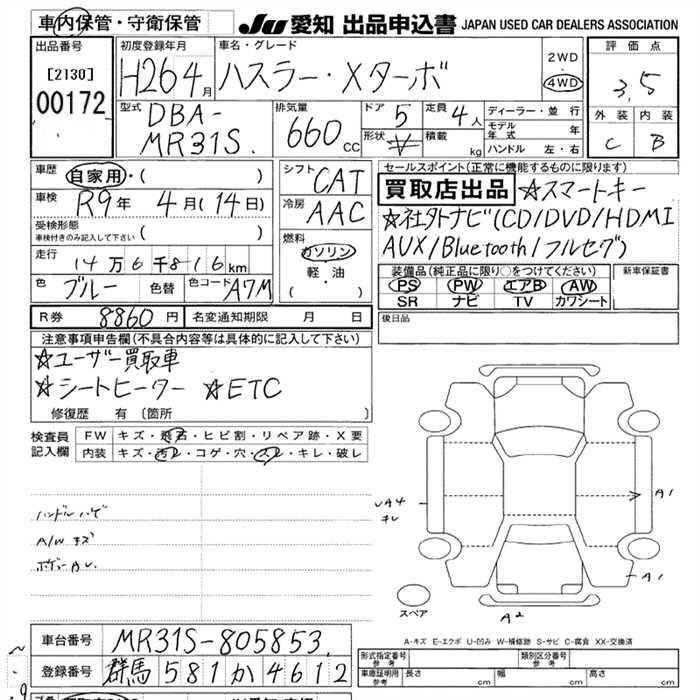 車内保管・守衛保管
JU 愛知 出品申込書 JAPAN USED CAR DEALERS ASSOCIATION
出品番号
[2130]
00172
初度登録年月
H26 4月
車名・グレード
ハスラー・Xターボ
2WD
・
4WD
評価点
3.5
外装 内装
C B
型式
DBA-
MR31S.
排気量
660 cc
ドア 5
形状
定員 4人
積載 kg
ディーラー・並行
モデル年式 年
ハンドル 左・右
車歴
自家用・( )
車検 R9年 4月(14日)
受検形態
車検付きのみ記入して下さい ( )
走行
14万6千816km
色 ブルー 色替 色コード A7M
シフト CAT
冷房 AAC
燃料
ガソリン
軽・油
( ・ )
セールスポイント(正常に機能するものに限ります)
買取店出品 ☆スマートキー
☆社外ナビ(CD/DVD/HDMI
AUX/Bluetooth/フルセグ)
装備品(純正品に限り○をつけてください)
PS PW エアB AW
SR ナビ TV カワシート
新車保証書
後日品
R券 8860円 名変通知期限 月 日
注意事項申告欄(不具合内容等は具体的に記入して下さい)
☆ユーザー買取車
☆シートヒーター ☆ETC
修復歴 有 〔箇所 〕
検査員記入欄
FW キズ・飛石・ヒビ割・リペア跡・X要
内装 キズ・汚レ・コゲ・穴・スレ・キレ・破レ
ハンドルハゲ
A/Wキズ
ボデーAU.
UA4
キレ
A1
A1
A2
スペア
A-キズ E-エクボ U-凹み W-補修跡 S-サビ C-腐食 XX-交換済
車台番号 MR31S-805853
登録番号 群馬 581 か 4612
形式指定番号 参考
類別区分番号 参考
車庫証明用 参考 長さ cm 幅 cm 高さ cm